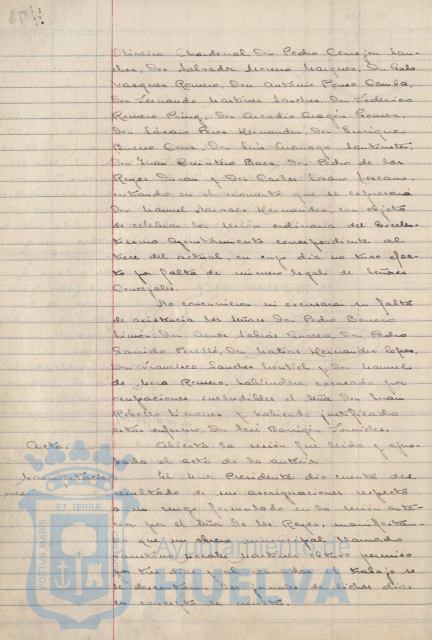 Oliveira Chardenal, Don Pedro Cerrejón Sán-
chez, Don Salvador Moreno Márquez, Don Pablo
Vázquez Romero, Don Antonio Ponce Camba,
Don Fernando Martínez Sánchez, Don Federico
Romero, Don Arcadio Aragón Gómez,
Don Lázaro Pérez Hernández, Don Enrique
Bueno Cruz, Don Luis,
Don Juan Quintero Baez, Don Pedro de los
Reyes Durán y Don Carlos Lozano
entrando en el momento que se expresará
Don Manuel Narváez Hernández, con objeto
de celebrar la sesión ordinaria del Excelen-
tísimo Ayuntamiento correspondiente al
trece del actual, en cuyo día no tuvo efec-
to por falta de número legal de Señores
Concejales.
No concurrieron ni excusaron su falta
de asistencia los Señores Don Pedro
Limón, Don Don Pedro
Garrido Perelló, Don Matías Hernández López,
Don Francisco Sánchez y Don Manuel
de Mora Romero, habiéndose excusado por
ocupaciones ineludibles el Señor Don Juan
Rebollo y habiendo justificado
estar enfermo Don José Barrigón
Acta. Abierta la sesión fue leída y apro-
bada el acta de la anterior
El Señor Presidente dio cuenta del
resultado de sus averiguaciones respecto
a un ruego formulado en la sesión ante-
rior por el Señor de los Reyes, manifestan-
do que un obrero municipal llamado
permiso
por tres días y al reanudar el trabajo se
le descontaron los jornales de dichos días
en concepto de multa.
ET TERRÆ
PORTUS MARIS
Ayuntamiento de
HUELVA